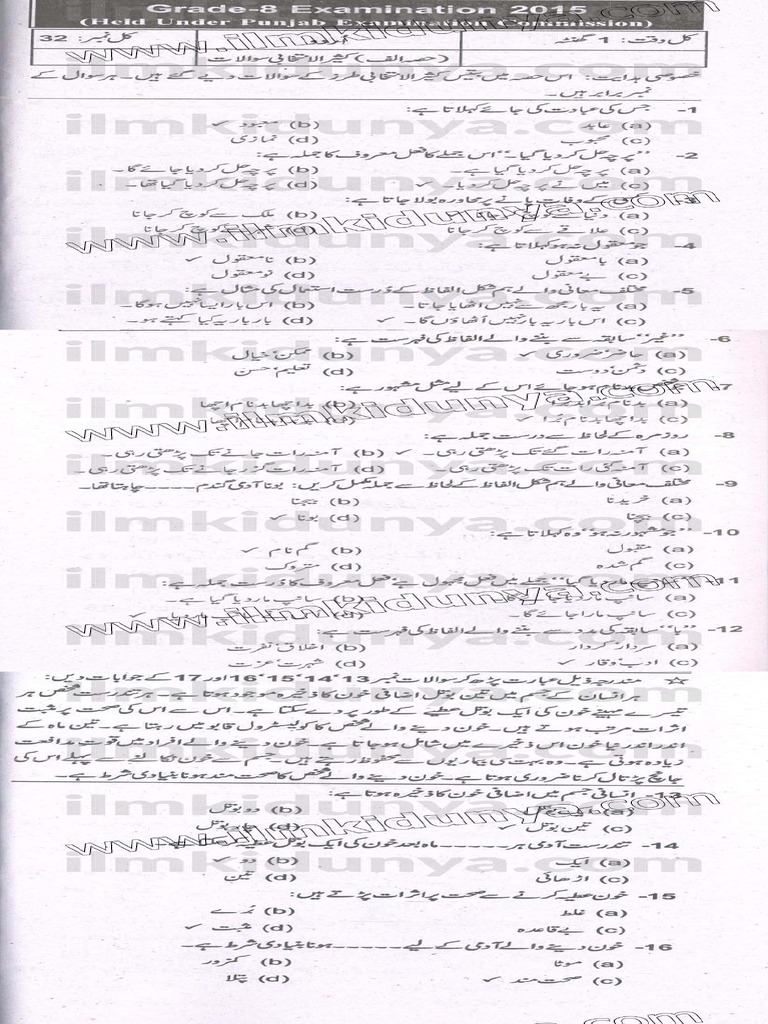 Grade-8 Examination 2015
(Held Under Punjab Examination Commission)
کل وقت: 1 گھنٹہ اُردو کل نمبر: 32
(حصہ الف) کثیر الانتخابی سوالات
خصوصی ہدایت: اس حصہ میں بتیس کثیر الانتخابی طرز کے سوالات دیے گئے ہیں۔ ہر سوال کے
نمبر برابر ہیں۔
1- جس کی عبادت کی جائے کہلاتا ہے:
(a) عابد (b) معبود ✓
(c) محبوب (d) نمازی
2- "پرچہ حل کر دیا گیا۔" اس جملے کا فعل معروف کا جملہ ہے:
(a) پرچہ حل کر دیا گیا ہے۔ (b) پرچہ حل کر دیا جائے گا۔
(c) میں نے پرچہ حل کر دیا۔ ✓ (d) پرچہ حل کر دیا گیا تھا۔
کے وفات پانے پر محاورہ بولا جاتا ہے:
(a) (b) ملک سے کوچ کر جانا
(c) علاقے سے کوچ کر جانا (d) کوچ کر جانا
4- جو معقول نہ ہو کہلاتا ہے:
(a) بامعقول (b) نامعقول ✓
(c) بے معقول (d) نو معقول
5- مختلف معانی والے ہم شکل الفاظ کے دُرست استعمال کی مثال ہے:
(a) یہ بار مجھ سے نہیں اٹھایا جاتا۔ (b) اس بار ایسا نہیں ہوگا۔
(c) اس بار یہ بار نہیں اُٹھاؤں گا۔ ✓ (d) بار بار یہ کیا کہتے ہو۔
6- "غیر" سابقہ سے بننے والے الفاظ کی فہرست ہے:
(a) حاضر، ضروری ✓ (b) ممکن، خیال
(c) دشمن، دوست (d) تعلیم، حسن
7- بدنام ہو جائے اس کے لیے مثل مشہور ہے:
(a) بدنام (b) بد اچھا بدنام اچھا
(c) بد اچھا بدنام بُرا ✓ (d)
8- روزمرہ کے لحاظ سے درست جملہ ہے:
(a) آمنہ رات گئے تک پڑھتی رہی۔ ✓ (b) آمنہ رات جانے تک پڑھتی رہی۔
(c) آمنہ گئی رات تک پڑھتی رہی۔ (d) آمنہ رات گزر جانے تک پڑھتی رہی۔
9- مختلف معانی والے ہم شکل الفاظ کے لحاظ سے جملہ مکمل کریں: بونا آدمی گندم ----- چاہتا تھا۔
(a) خریدنا (b) بیجنا
(c) بیچنا (d) بونا ✓
10- "جو مشہور نہ ہو" وہ کہلاتا ہے:
(a) مقبول (b) گم نام ✓
(c) گم شدہ (d) متروک
11- گیا" جملے میں فعل مجہول سے فعل معروف کا دُرست جملہ ہے:
(a) سانپ (b) سانپ مار دیا گیا ہے۔
(c) سانپ مارا جائے گا۔ (d) ✓
12- "با" سابقہ کی مدد سے بننے والے الفاظ کی فہرست ہے:
(a) سردار، کردار (b) اخلاق، نفرت
(c) ادب، وقار ✓ (d) شہرت، عزت
☆ مندرجہ ذیل عبارت پڑھ کر سوالات نمبر 13، 14، 15، 16 اور 17 کے جوابات دیں:
ہر انسان کے جسم میں تین بوتل اضافی خون کا ذخیرہ موجود ہوتا ہے۔ ہر تندرست شخص ہر
تیسرے مہینے خون کی ایک بوتل عطیے کے طور پر دے سکتا ہے۔ اس سے اس کی صحت پر مثبت
اثرات مرتب ہوتے ہیں۔ خون دینے والے شخص کا کولیسٹرول قابو میں رہتا ہے۔ تین ماہ کے
اندر اندر نیا خون اس ذخیرے میں شامل ہو جاتا ہے۔ خون دینے والے افراد میں قوت مدافعت
زیادہ ہوتی ہے۔ وہ بہت سی بیماریوں سے محفوظ رہتے ہیں۔ جسم سے خون نکالنے سے پہلے اس کی
جانچ پڑتال کرنا ضروری ہوتا ہے۔ خون دینے والے شخص کا صحت مند ہونا بنیادی شرط ہے۔
13- انسانی جسم میں اضافی خون کا ذخیرہ ہوتا ہے:
(a) (b) دو بوتل
(c) تین بوتل ✓ (d) چار بوتل
14- تندرست آدمی ہر ----- ماہ بعد خون کی ایک بوتل
(a) ایک (b) دو ✓
(c) اڑھائی (d) تین
15- خون عطیہ کرنے سے صحت پر اثرات پڑتے ہیں:
(a) غلط (b) بُرے
(c) بے قاعدہ (d) مثبت ✓
16- خون دینے والے آدمی کے لیے ----- ہونا بنیادی شرط ہے۔
(a) موٹا (b) کمزور
(c) صحت مند ✓ (d) پتلا
www.ilmkidunya.com